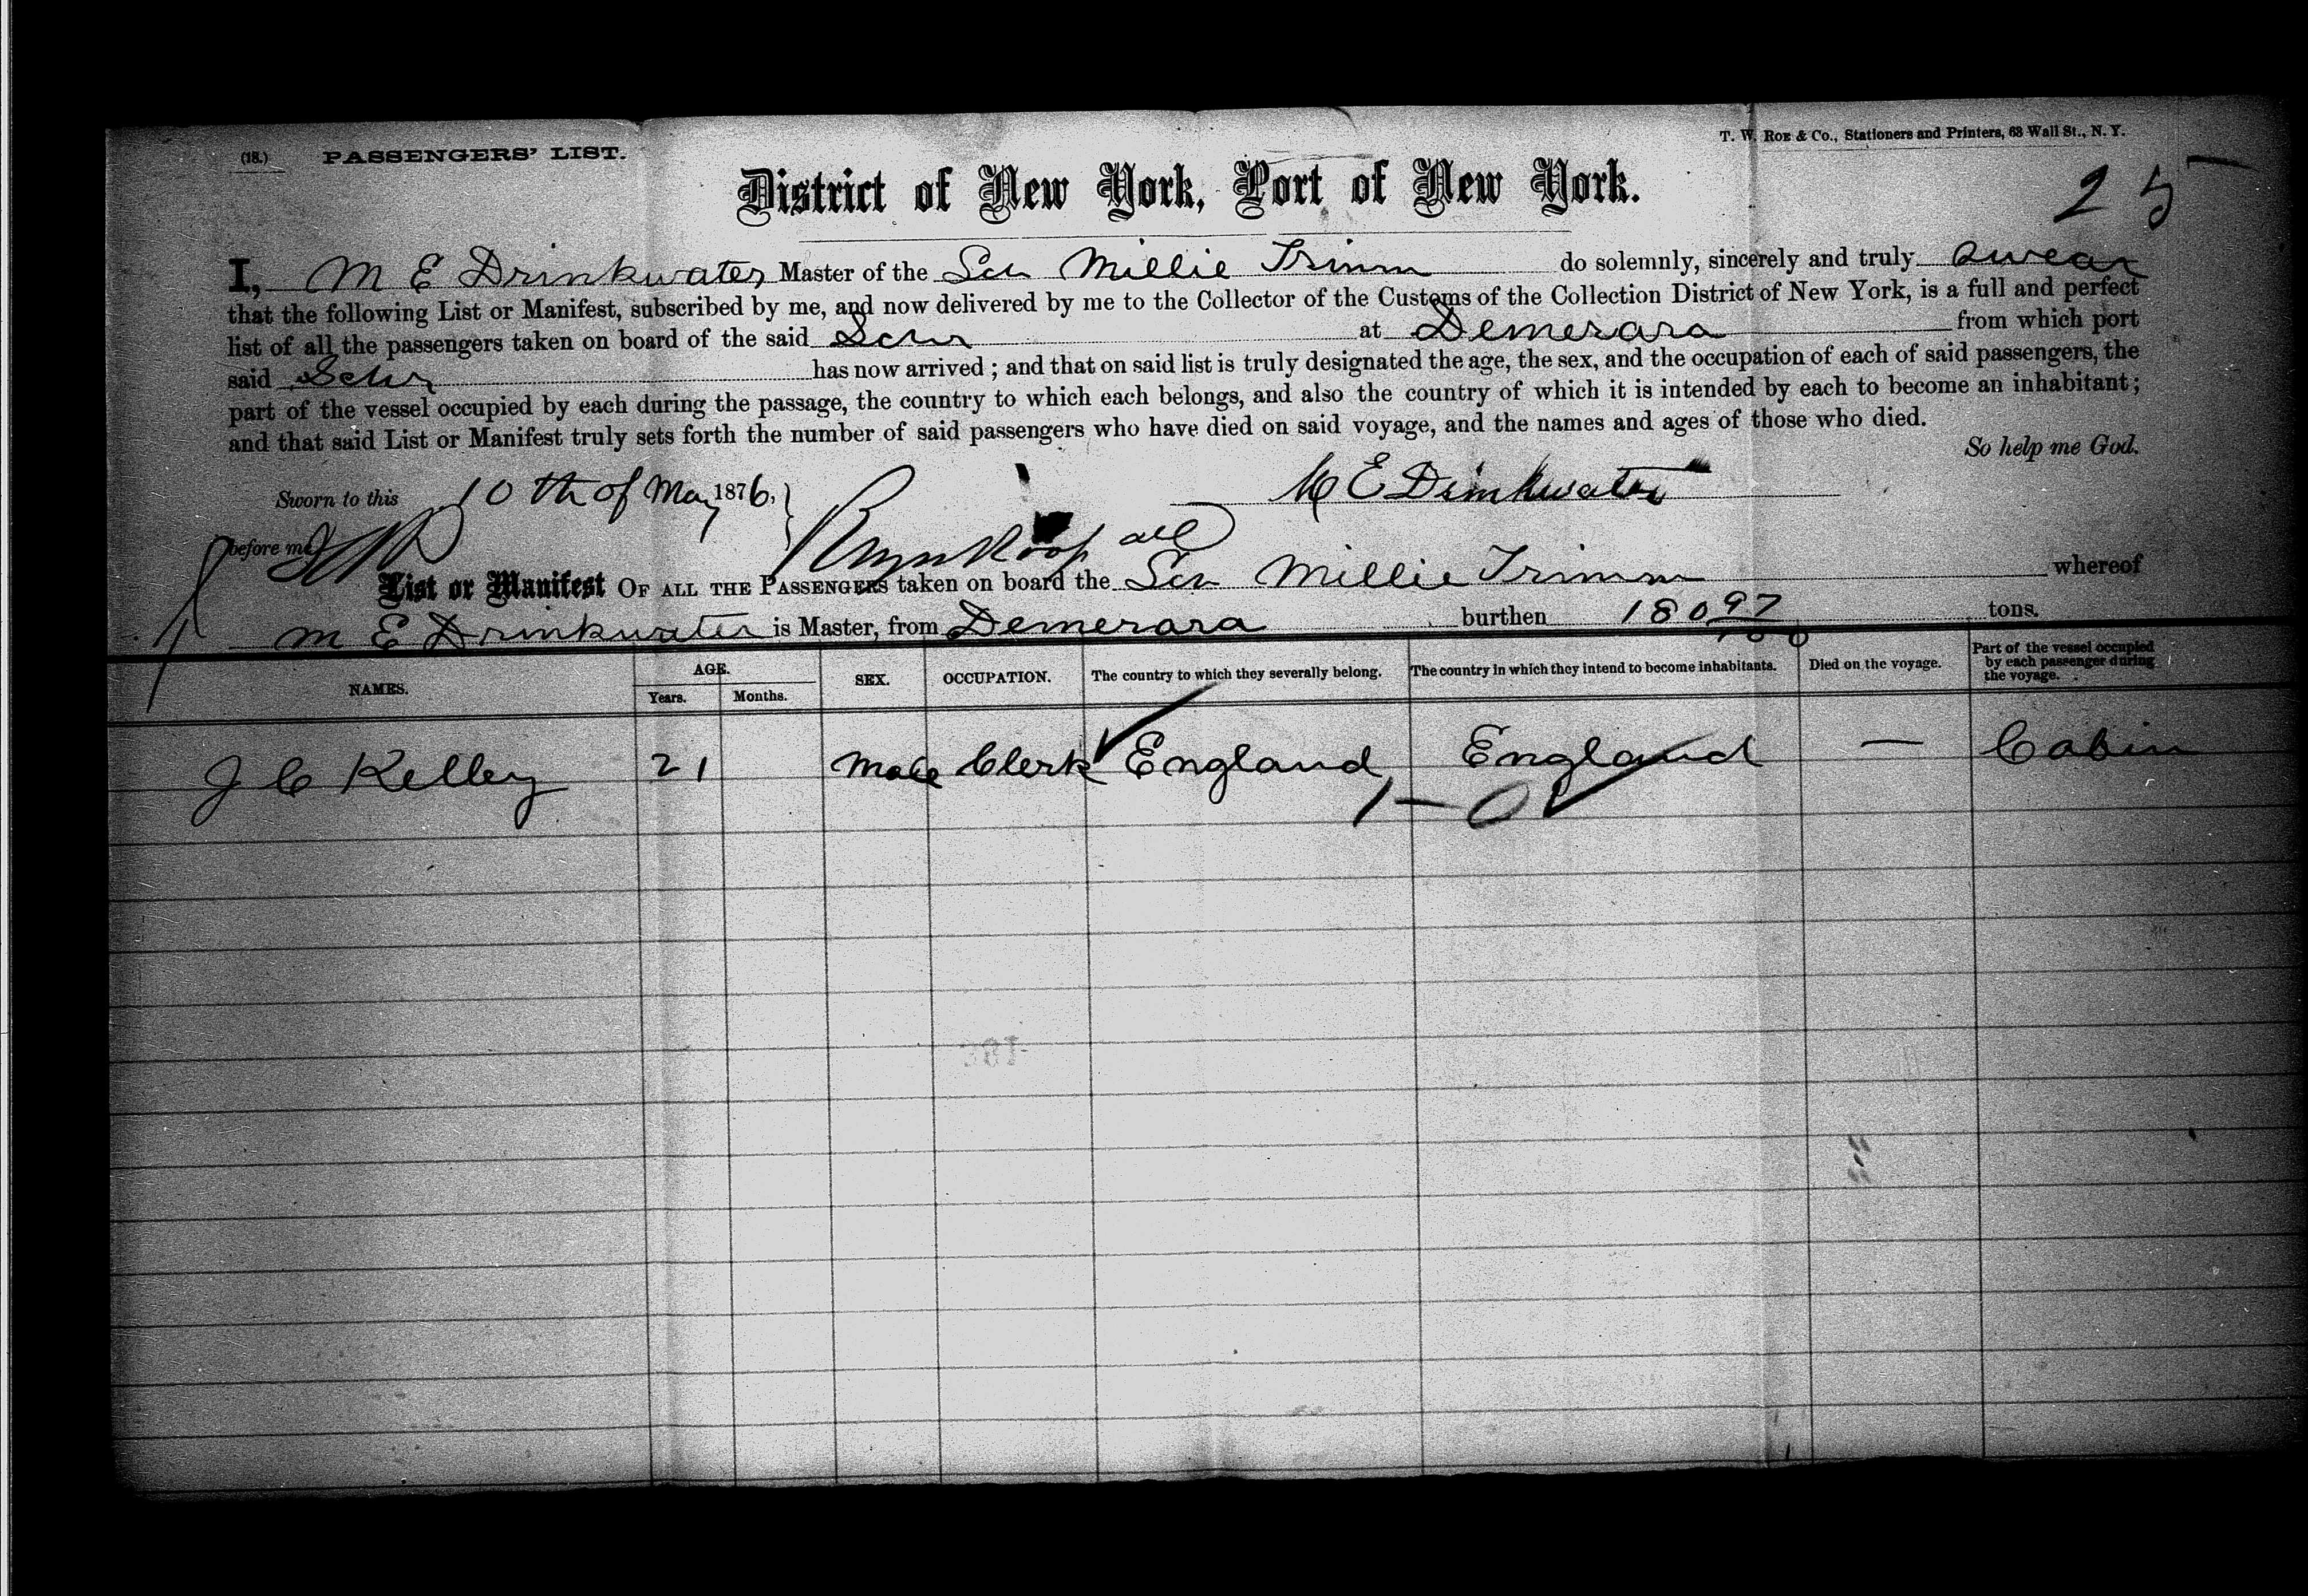 (18.) PASSENGERS' LIST.
T. W. ROE & Co., Stationers and Printers, 63 Wall St., N. Y.
25
District of New York, Port of New York.
I, M E Drinkwater Master of the Sch Millie Trimm do solemnly, sincerely and truly swear
that the following List or Manifest, subscribed by me, and now delivered by me to the Collector of the Customs of the Collection District of New York, is a full and perfect
list of all the passengers taken on board of the said Schr at Demerara from which port
said Schr has now arrived ; and that on said list is truly designated the age, the sex, and the occupation of each of said passengers, the
part of the vessel occupied by each during the passage, the country to which each belongs, and also the country of which it is intended by each to become an inhabitant ;
and that said List or Manifest truly sets forth the number of said passengers who have died on said voyage, and the names and ages of those who died.
So help me God.
Sworn to this 10th of May 1876, M E Drinkwater
before me
List or Manifest OF ALL THE PASSENGERS taken on board the Sch Millie Trimm whereof
M E Drinkwater is Master, from Demerara burthen 180 97/100 tons.
NAMES. AGE. Years. Months. SEX. OCCUPATION. The country to which they severally belong. The country in which they intend to become inhabitants. Died on the voyage. Part of the vessel occupied by each passenger during the voyage.
J C Kelley 21 Male Clerk England England — Cabin
1 — 0